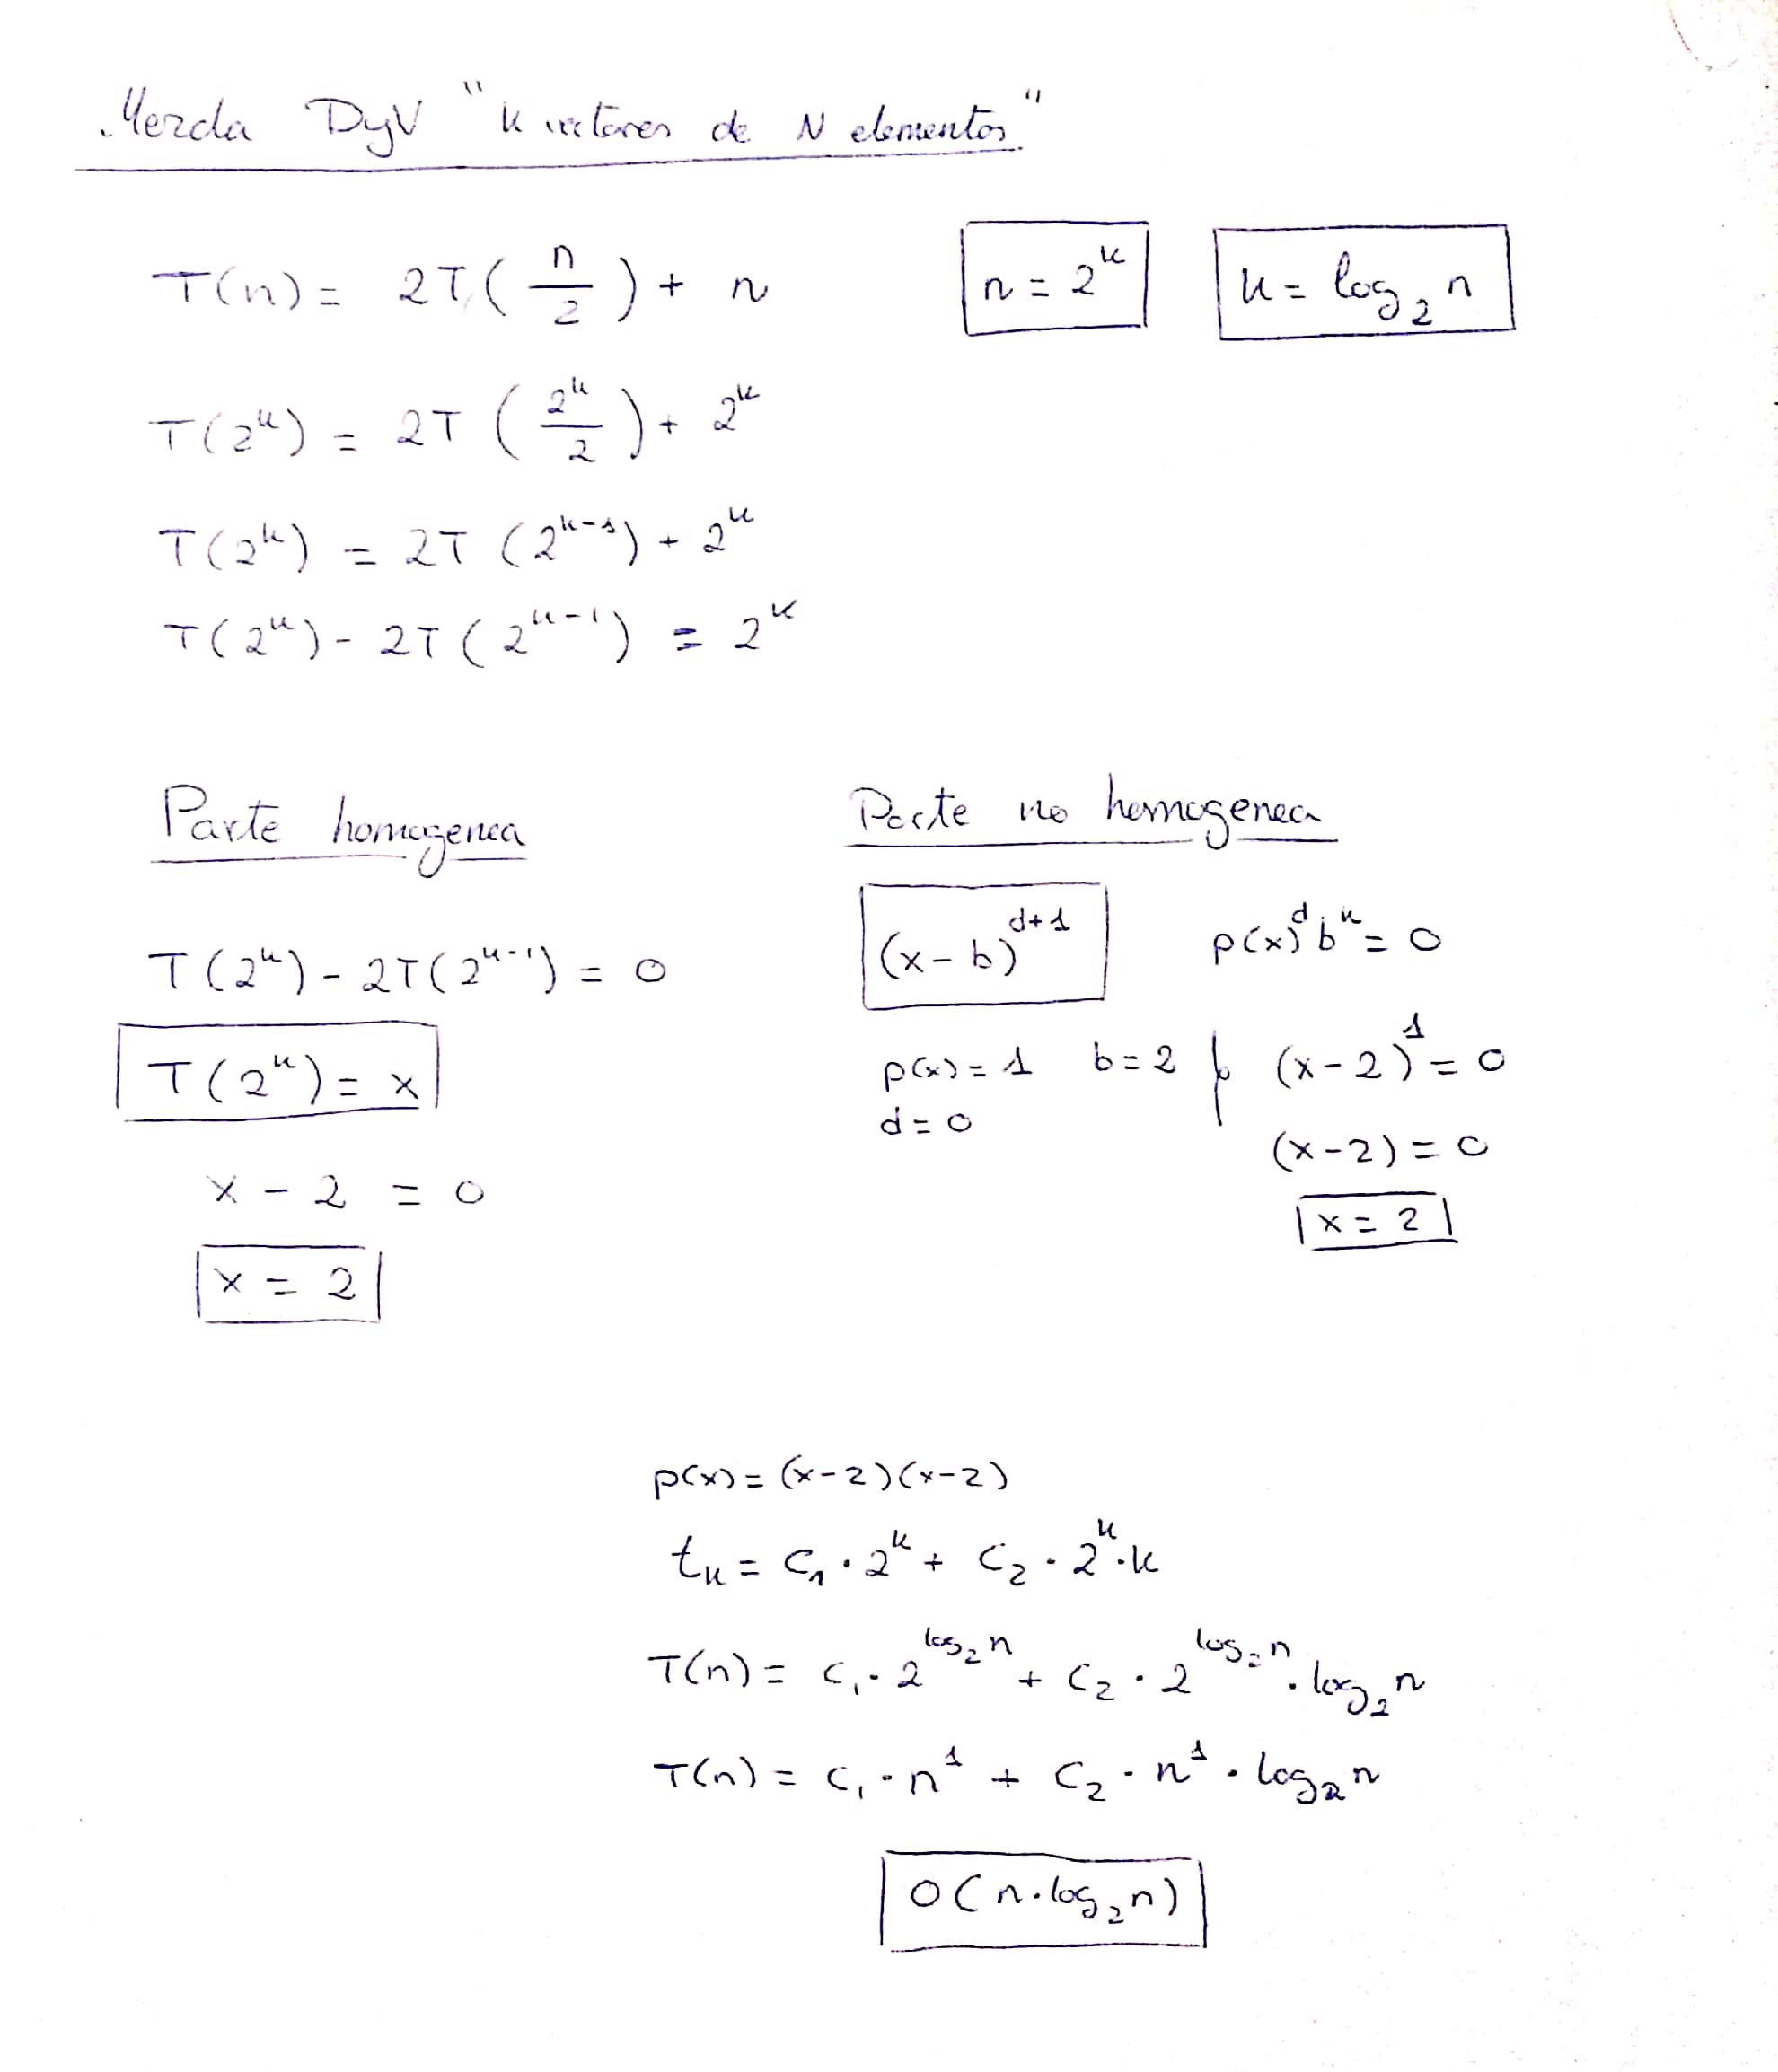 Mezcla DyV "k vectores de N elementos"
T(n) = 2T(n/2) + n
n = 2^k
k = log₂ n
T(2^k) = 2T(2^k/2) + 2^k
T(2^k) = 2T(2^(k-1)) + 2^k
T(2^k) - 2T(2^(k-1)) = 2^k
Parte homogenea
T(2^k) - 2T(2^(k-1)) = 0
T(2^k) = x
x - 2 = 0
x = 2
Parte no homogenea
(x-b)^(d+1)
p(x)^d b^k = 0
p(x) = 1 b = 2
d = 0
(x-2)^1 = 0
(x-2) = 0
x = 2
p(x) = (x-2)(x-2)
t_k = c₁ · 2^k + c₂ · 2^k · k
T(n) = c₁ · 2^(log₂ n) + c₂ · 2^(log₂ n) · log₂ n
T(n) = c₁ · n^1 + c₂ · n^1 · log₂ n
O(n · log₂ n)